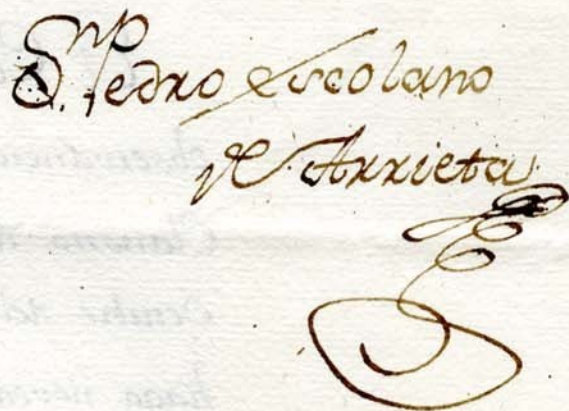 Dn. Pedro Escolano
de Arrieta